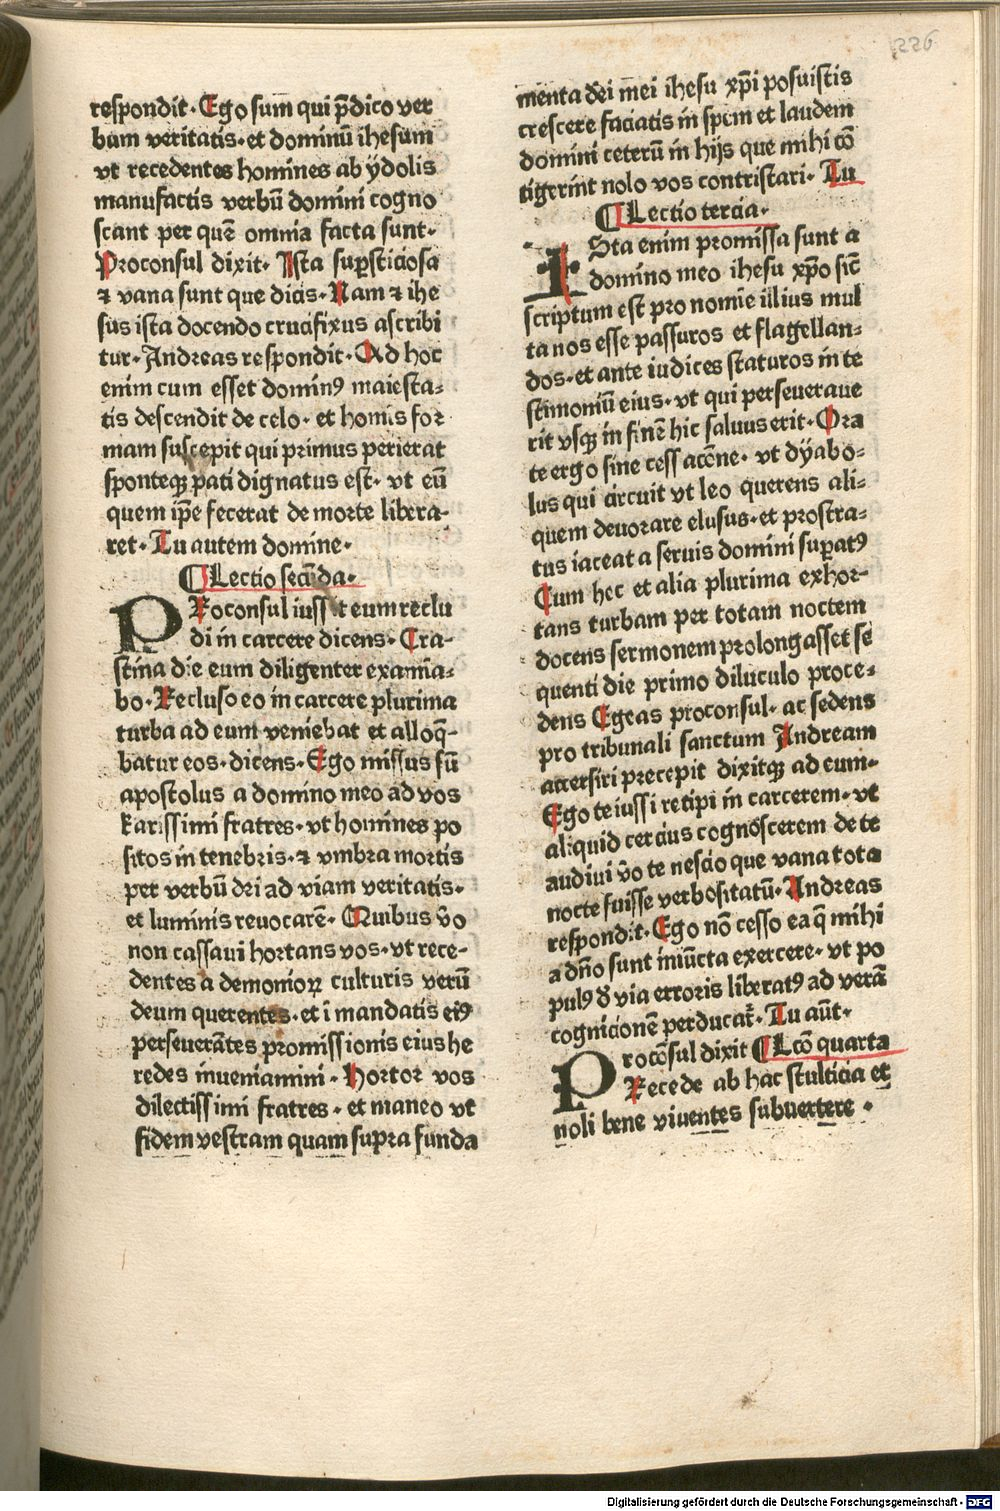 226
respondit. Ego sum qui p̄dico ver
bum veritatis. et dominū ihesum
vt recedentes homines ab ẏdolis
manufactis verbū domini cogno
scant per quē omnia facta sunt.
Proconsul dixit. Ista suꝑsticiosa
⁊ vana sunt que dicis. Nam ⁊ ihe
sus ista docendo crucifixus ascribi
tur. Andreas respondit. Ad hoc
enim cum esset dominꝰ maiesta⸗
tis descendit de celo. et homīs for
mam suscepit qui primus perierat
sponteqꝫ pati dignatus est. vt eū
quem ip̄e fecerat de morte libera⸗
ret. Tu autem domine.
¶ Lectio secūda.
PRoconsul iussit eum reclu
di in carcere dicens. Cra⸗
stina die eum diligenter examīa⸗
bo. Recluso eo in carcere plurima
turba ad eum veniebat et alloq̄⸗
batur eos. dicens. Ego missus sū
apostolus a domino meo ad vos
karissimi fratres. vt homines po
sitos in tenebris. ⁊ vmbra mortis
per verbū dei ad viam veritatis.
et luminis reuocarē. Quibus v̄o
non cassaui hortans vos. vt rece⸗
dentes a demonioꝝ culturis verū
deum querentes. et ī mandatis eiꝰ
perseuerātes promissionis eius he
redes inueniamini. Hortor vos
dilectissimi fratres. et maneo vt
fidem vestram quam supra funda
menta dei mei ihesu xp̄i posuistis
crescere faciatis in spem et laudem
domini ceterū in hijs que mihi cō
tigerint nolo vos contristari. Tu
¶ Lectio tercia.
ISta enim promissa sunt a
domino meo ihesu xp̄o sic̄
scriptum est pro nomīe illius mul
ta nos esse passuros et flagellan⸗
dos. et ante iudices staturos in te
stimoniū eius. vt qui perseueraue
rit vsqꝫ in finē hic saluus erit. Ora
te ergo sine cessacōne. vt dẏabo⸗
lus qui circuit vt leo querens ali⸗
quem deuorare elusus. et prostra⸗
tus iaceat a seruis domini suꝑatꝰ
Cum hec et alia plurima exhor⸗
tans turbam per totam noctem
docens sermonem prolongasset se
quenti die primo diluculo proce⸗
dens Egeas proconsul. ac sedens
pro tribunali sanctum Andream
accersiri precepit dixitqꝫ ad eum.
Ego te iussi retipi in carcerem. vt
aliquid cercius cognoscerem de te
audiui v̄o te nescio que vana tota
nocte fuisse verbositatū. Andreas
respondit. Ego nō cesso ea q̄ mihi
a dn̄o sunt iniūcta exercere. vt po
pulꝰ de via erroris liberatꝰ ad verā
cognicionē perducat̄. Tu aūt.
¶ Lcō quarta
Procōsul dixit
Recede ab hac stulticia et
noli bene viuentes subuertere.
Digitalisierung gefördert durch die Deutsche Forschungsgemeinschaft - DFG